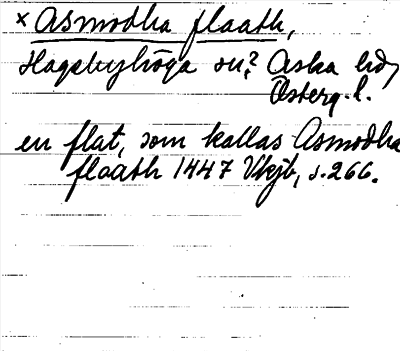 × Asmodha flaath,
Hagebyhöga sn? Aska hd,
Österg. l.
en flat, som kallas Asmodha
flaath 1447 Vkjb, s. 266.